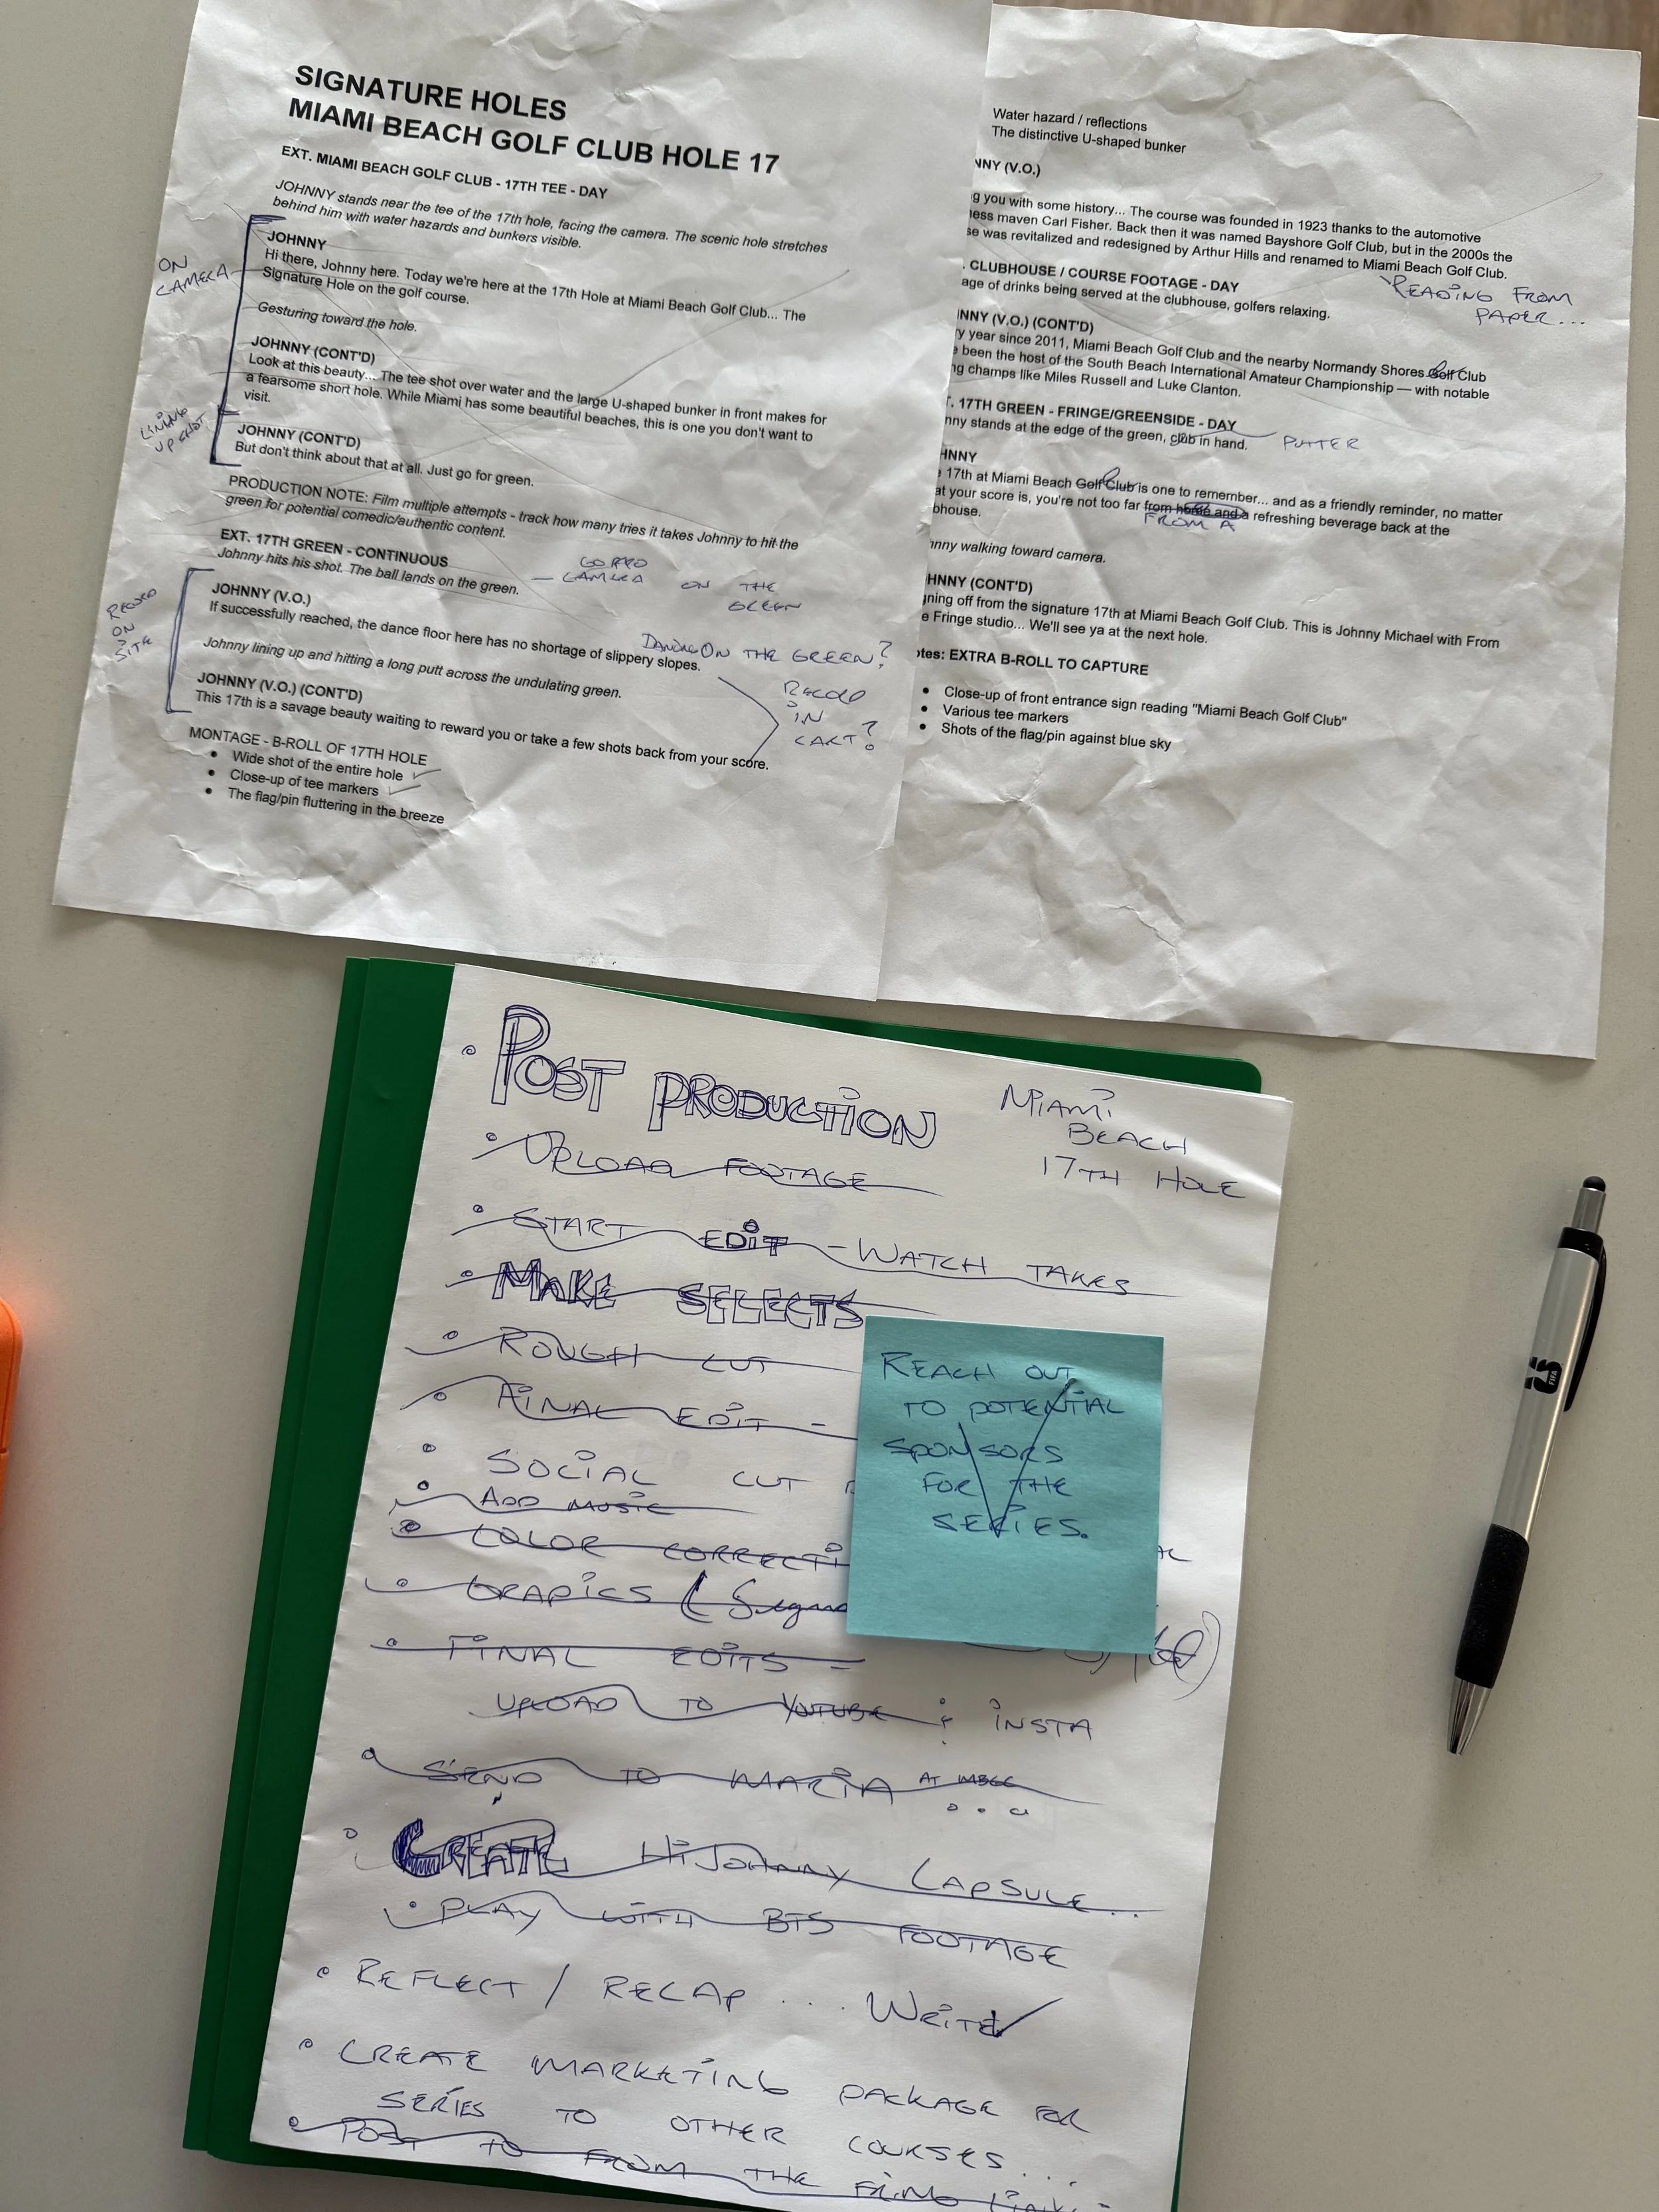 SIGNATURE HOLES
MIAMI BEACH GOLF CLUB HOLE 17
EXT. MIAMI BEACH GOLF CLUB - 17TH TEE - DAY
JOHNNY stands near the tee of the 17th hole, facing the camera. The scenic hole stretches
behind him with water hazards and bunkers visible.
ON
CAMERA
JOHNNY
Hi there, Johnny here. Today we're here at the 17th Hole at Miami Beach Golf Club... The
Signature Hole on the golf course.
Gesturing toward the hole.
JOHNNY (CONT'D)
Look at this beauty... The tee shot over water and the large U-shaped bunker in front makes for
a fearsome short hole. While Miami has some beautiful beaches, this is one you don't want to
visit.
LINING
UP SHOT
JOHNNY (CONT'D)
But don't think about that at all. Just go for green.
PRODUCTION NOTE: Film multiple attempts - track how many tries it takes Johnny to hit the
green for potential comedic/authentic content.
EXT. 17TH GREEN - CONTINUOUS
Johnny hits his shot. The ball lands on the green.
GOPRO
— CAMERA ON THE
GREEN
RECORD
ON
SITE
JOHNNY (V.O.)
If successfully reached, the dance floor here has no shortage of slippery slopes.
DANCING ON THE GREEN?
Johnny lining up and hitting a long putt across the undulating green.
RECORD
IN
CART?
JOHNNY (V.O.) (CONT'D)
This 17th is a savage beauty waiting to reward you or take a few shots back from your score.
MONTAGE - B-ROLL OF 17TH HOLE
• Wide shot of the entire hole ✓
• Close-up of tee markers ✓
• The flag/pin fluttering in the breeze
Water hazard / reflections
The distinctive U-shaped bunker
NNY (V.O.)
g you with some history... The course was founded in 1923 thanks to the automotive
ess maven Carl Fisher. Back then it was named Bayshore Golf Club, but in the 2000s the
se was revitalized and redesigned by Arthur Hills and renamed to Miami Beach Golf Club.
READING FROM
PAPER...
. CLUBHOUSE / COURSE FOOTAGE - DAY
age of drinks being served at the clubhouse, golfers relaxing.
NNY (V.O.) (CONT'D)
y year since 2011, Miami Beach Golf Club and the nearby Normandy Shores Golf Club
e been the host of the South Beach International Amateur Championship — with notable
ng champs like Miles Russell and Luke Clanton.
. 17TH GREEN - FRINGE/GREENSIDE - DAY
nny stands at the edge of the green, club in hand. PUTTER
HNNY
17th at Miami Beach Golf Club is one to remember... and as a friendly reminder, no matter
at your score is, you're not too far from home and a refreshing beverage back at the
FROM A
bhouse.
hnny walking toward camera.
HNNY (CONT'D)
ning off from the signature 17th at Miami Beach Golf Club. This is Johnny Michael with From
e Fringe studio... We'll see ya at the next hole.
otes: EXTRA B-ROLL TO CAPTURE
• Close-up of front entrance sign reading "Miami Beach Golf Club"
• Various tee markers
• Shots of the flag/pin against blue sky
• POST PRODUCTION
MIAMI
BEACH
17TH HOLE
• UPLOAD FOOTAGE
• START EDIT - WATCH TAKES
• MAKE SELECTS
• ROUGH CUT
• FINAL EDIT -
• SOCIAL CUT
• ADD MUSIC
• COLOR CORRECTI
• GRAPICS (
• FINAL EDITS -
UPLOAD TO YOUTUBE & INSTA
• SEND TO MARIA AT MBGC
...
• CREATE Hi JOHNNY CAPSULE...
• PLAY WITH BTS FOOTAGE
• REFLECT / RECAP ... WRITE ✓
• CREATE MARKETING PACKAGE FOR
SERIES TO OTHER COURSES...
• POST TO FROM THE FRING
REACH OUT
TO POTENTIAL
SPONSORS
FOR THE
SERIES.